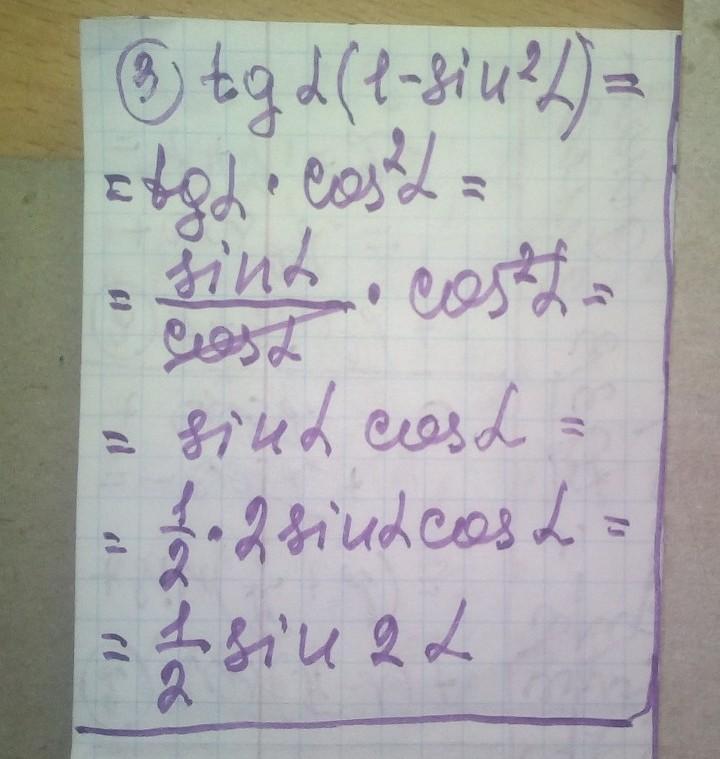 ③ tg α(1-sin²α)=
= tgα · cos²α =
= sinα/cosα · cos²α =
= sinα cosα =
= 1/2 · 2sinαcosα =
= 1/2 sin 2α